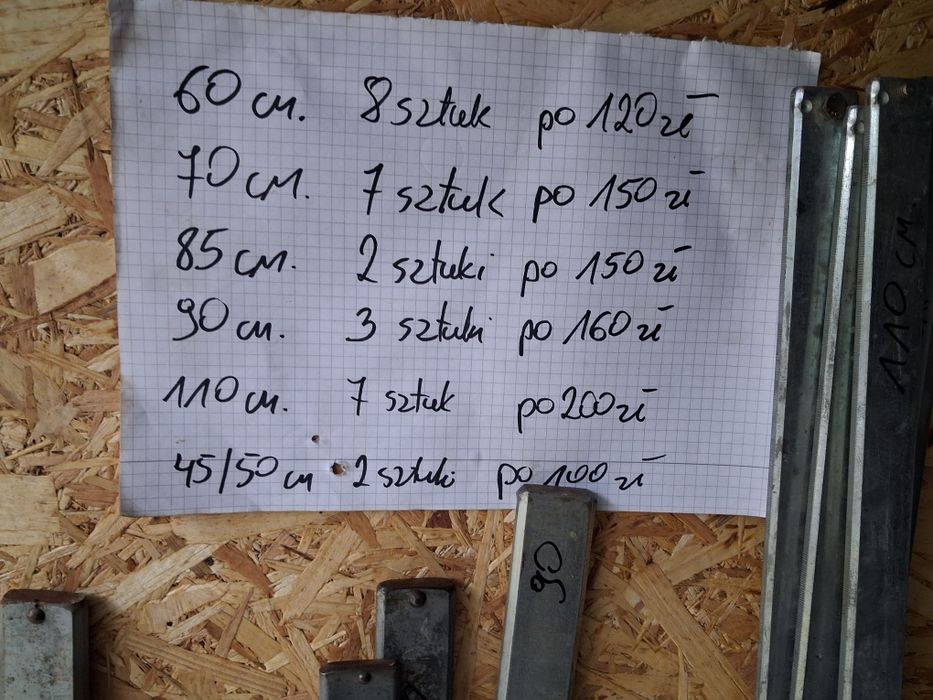 60 cm. 8 sztuk po 120 zł
70 cm. 7 sztuk po 150 zł
85 cm. 2 sztuki po 150 zł
90 cm. 3 sztuki po 160 zł
110 cm. 7 sztuk po 200 zł
45/50 cm 2 sztuki po 100 zł
110 cm
90